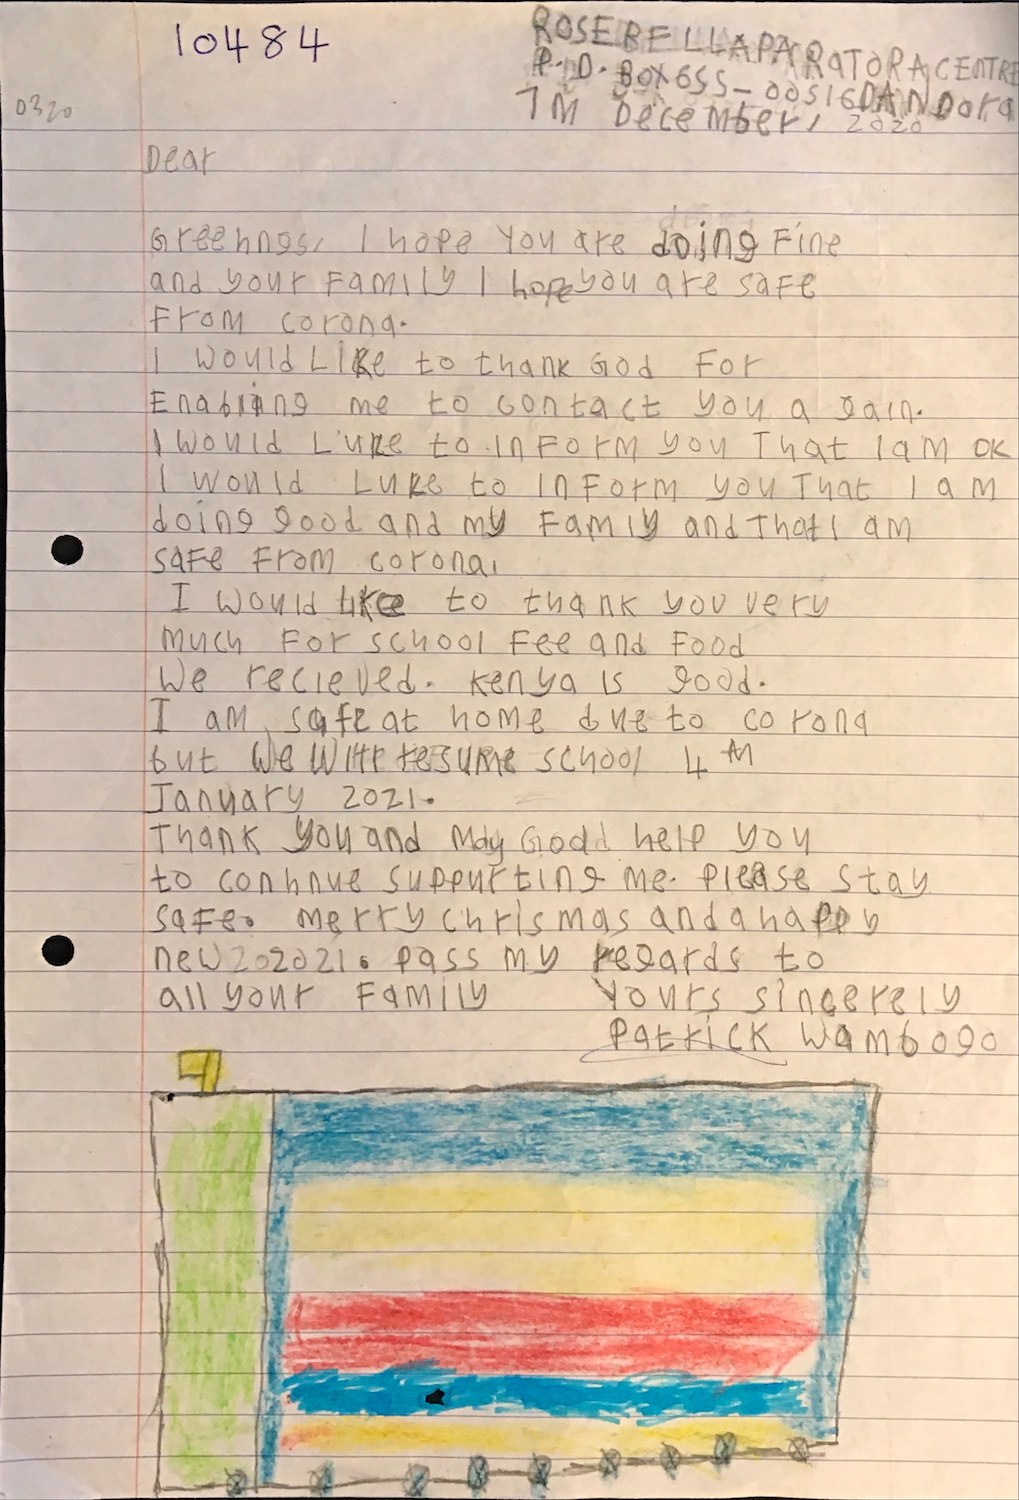 10484
ROSEBELLAPARATORACENTRE
P.O. BOX655-00516DANDora
0320
7M December, 2020
Dear
Greehngs, I hope you are doing Fine
and your Family I hope you are safe
From corona.
I would Like to thank God For
Enabling me to contact you a gain.
I would Luke to inForm you That I am OK
I would Luke to inForm you That I am
doing good and my Family and That I am
safe From corona,
I would like to thank you very
Much For school Fee and Food
We recieved. Kenya is good.
I am safe at home due to corona
but We Will resume school 4M
January 2021.
Thank you and May Godd help you
to conhnue suppurting me. please stay
saFe. merry chrismas and a happy
new202021. pass my regards to
all your Family Yours sincerely
Patrick Wambogo